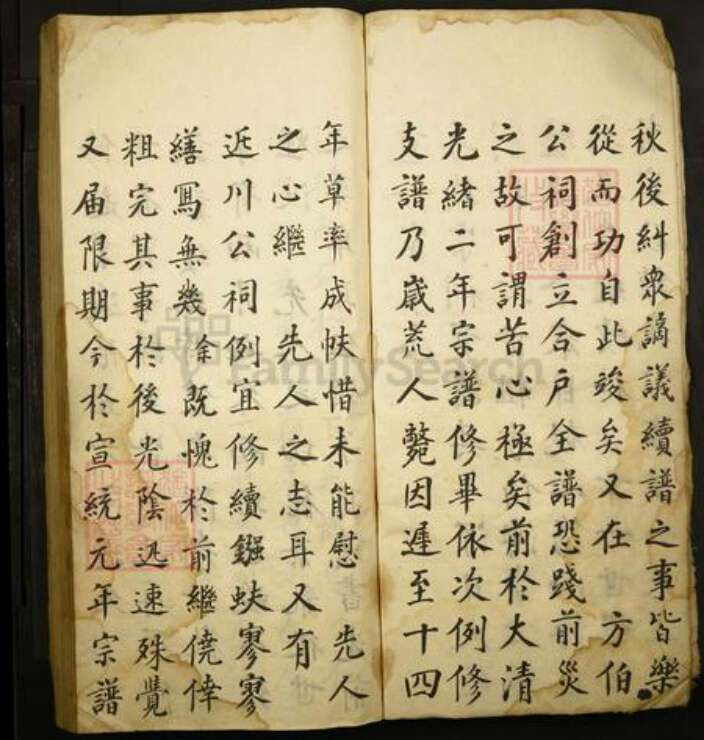 秋後糾衆謫議續譜之事皆樂
從而功自此竣矣又在 方伯
公祠創立合户全譜恐踐前災
之故可謂苦心極矣前於大清
光緒二年宗譜修畢依次例修
支譜乃嵗荒人斃因遲至十四
年草率成帙惜未能慰 先人
之心繼 先人之志耳又有
近川公祠例宜修續鏹蚨寥寥
繕寫無幾餘既愧於前繼僥倖
粗完其事於後光陰迅速殊覺
又届限期今於宣統元年宗譜
FamilySearch